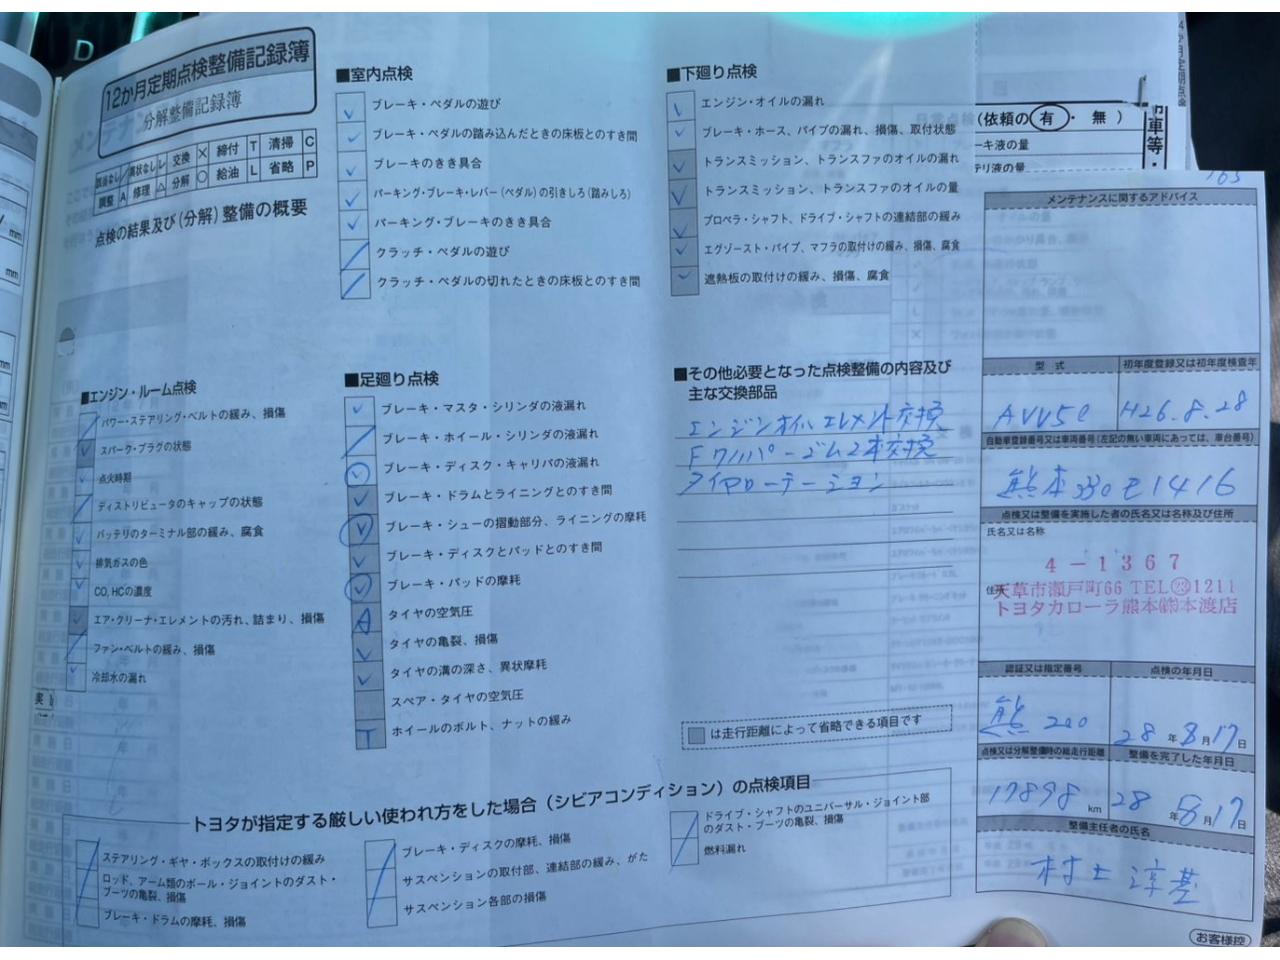 D
12か月定期点検整備記録簿
分解整備記録簿
該当なし ／ 異状なし レ 交換 × 締付 T 清掃 C
調整 A 修理 △ 分解 ○ 給油 L 省略 P
点検の結果及び(分解)整備の概要
■室内点検
ブレーキ・ペダルの遊び
ブレーキ・ペダルの踏み込んだときの床板とのすき間
ブレーキのきき具合
パーキング・ブレーキ・レバー(ペダル)の引きしろ(踏みしろ)
パーキング・ブレーキのきき具合
クラッチ・ペダルの遊び
クラッチ・ペダルの切れたときの床板とのすき間
■下廻り点検
エンジン・オイルの漏れ
ブレーキ・ホース、パイプの漏れ、損傷、取付状態
トランスミッション、トランスファのオイルの漏れ
トランスミッション、トランスファのオイルの量
プロペラ・シャフト、ドライブ・シャフトの連結部の緩み
エグゾースト・パイプ、マフラの取付けの緩み、損傷、腐食
遮熱板の取付けの緩み、損傷、腐食
(依頼の 有 ・ 無 )
ーキ液の量
テリ液の量
■エンジン・ルーム点検
パワー・ステアリング・ベルトの緩み、損傷
スパーク・プラグの状態
点火時期
ディストリビュータのキャップの状態
バッテリのターミナル部の緩み、腐食
排気ガスの色
CO, HCの濃度
エア・クリーナ・エレメントの汚れ、詰まり、損傷
ファン・ベルトの緩み、損傷
冷却水の漏れ
■足廻り点検
ブレーキ・マスタ・シリンダの液漏れ
ブレーキ・ホイール・シリンダの液漏れ
ブレーキ・ディスク・キャリパの液漏れ
ブレーキ・ドラムとライニングとのすき間
ブレーキ・シューの摺動部分、ライニングの摩耗
ブレーキ・ディスクとパッドとのすき間
ブレーキ・パッドの摩耗
A タイヤの空気圧
タイヤの亀裂、損傷
タイヤの溝の深さ、異状摩耗
スペア・タイヤの空気圧
T ホイールのボルト、ナットの緩み
■その他必要となった点検整備の内容及び
主な交換部品
エンジンオイル エレメント交換
Fワイパーゴム2本交換
タイヤローテーション
は走行距離によって省略できる項目です
トヨタが指定する厳しい使われ方をした場合(シビアコンディション)の点検項目
ステアリング・ギヤ・ボックスの取付けの緩み
ロッド、アーム類のボール・ジョイントのダスト・
ブーツの亀裂、損傷
ブレーキ・ドラムの摩耗、損傷
ブレーキ・ディスクの摩耗、損傷
サスペンションの取付部、連結部の緩み、がた
サスペンション各部の損傷
ドライブ・シャフトのユニバーサル・ジョイント部
のダスト・ブーツの亀裂、損傷
燃料漏れ
メンテナンスに関するアドバイス
型 式 初年度登録又は初年度検査年
AVV50 H26.8.28
自動車登録番号又は車両番号(左記の無い車両にあっては、車台番号)
熊本330 そ1416
点検又は整備を実施した者の氏名又は名称及び住所
氏名又は名称
4-1367
天草市瀬戸町66 TEL㉓1211
トヨタカローラ熊本㈱本渡店
認証又は指定番号 点検の年月日
熊 200 28年8月17日
点検又は分解整備時の総走行距離 整備を完了した年月日
17898 km 28年8月17日
整備主任者の氏名
村上 淳基
お客様控